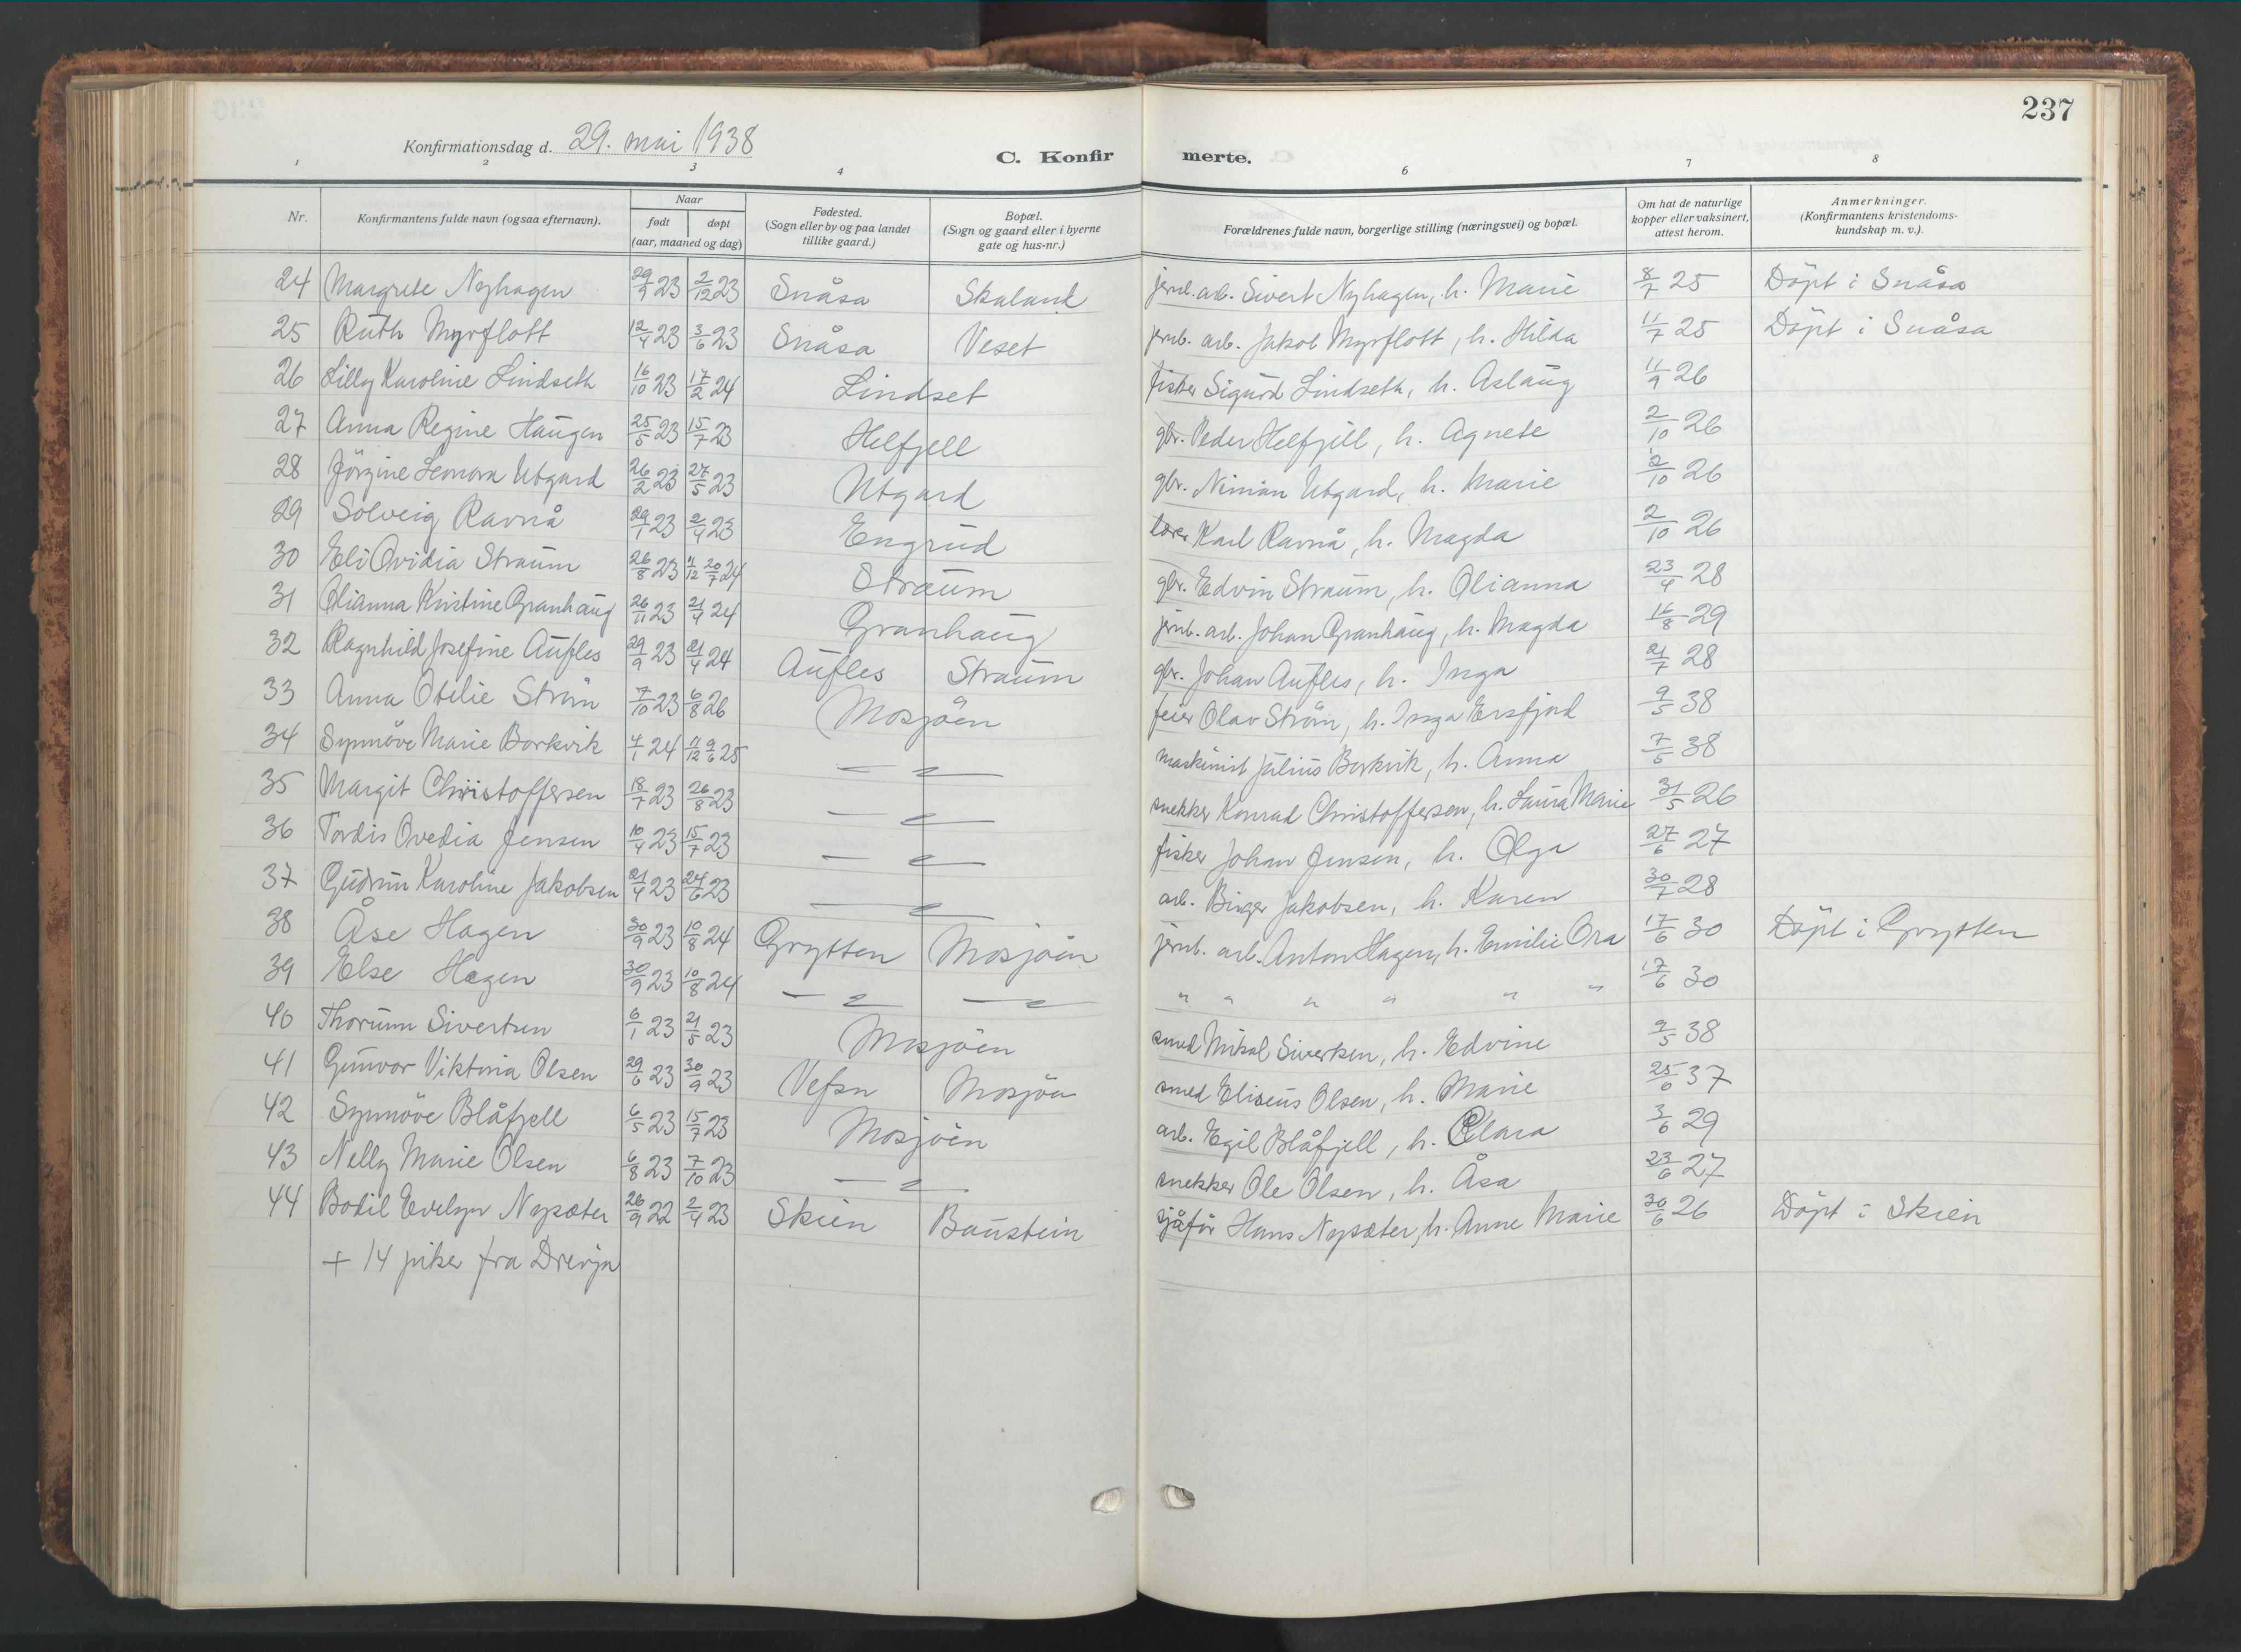 237
Konfirmationsdag d. 29. mai 1938
C. Konfirmerte.
1 2 3 4 6 7 8
Nr. | Konfirmantens fulde navn (ogsaa efternavn). | Naar født døpt (aar, maaned og dag) | Fødested. (Sogn eller by og paa landet tillike gaard.) | Bopæl. (Sogn og gaard eller i byerne gate og hus-nr.) | Forældrenes fulde navn, borgerlige stilling (næringsvei) og bopæl. | Om hat de naturlige kopper eller vaksinert, attest herom. | Anmerkninger. (Konfirmantens kristendomskundskap m. v.).
24 Margrete Nyhagen 29/9 23 2/12 23 Snåsa Skaland jernb. arb. Sivert Nyhagen, h. Marie 8/7 25 Döpt i Snåsa
25 Ruth Myrflott 12/4 23 3/6 23 Snåsa Veset jernb. arb. Jakob Myrflott, h. Hilda 11/7 25 Döpt i Snåsa
26 Lilly Karoline Lindseth 16/10 23 17/2 24 Lindset fisker Sigurd Lindseth, h. Aslaug 11/9 26
27 Anna Regine Haugen 25/5 23 15/7 23 Helfjell gbr. Peder Helfjell, h. Agnete 2/10 26
28 Jörgine Leonora Utgard 26/2 23 27/5 23 Utgard gbr. Nimian Utgard, h. Marie 2/10 26
29 Solveig Ravnå 29/1 23 2/4 23 Engrud lærer Karl Ravnå, h. Magda 2/10 26
30 Eli Ovidia Straum 26/8 23 4/12 20/7 24 Straum gbr. Edvin Straum, h. Olianna 23/4 28
31 Olianna Kristine Granhaug 26/11 23 21/4 24 Granhaug jernb. arb. Johan Granhaug, h. Magda 16/8 29
32 Ragnhild Josefine Aufles 29/9 23 21/4 24 Aufles Straum gbr. Johan Aufles, h. Inga 21/7 28
33 Anna Otelie Ström 7/10 23 6/8 26 Mosjöen feier Olav Ström, h. Inga Ersfjord 9/5 38
34 Synnöve Marie Borkvik 4/1 24 11/12 9/6 25 — " — maskinist Julius Borkvik, h. Anna 7/5 38
35 Margit Christoffersen 18/7 23 26/8 23 — " — snekker Konrad Christoffersen, h. Laura Marie 31/5 26
36 Tordis Ovedia Jensen 10/4 23 15/7 23 — " — fisker Johan Jensen, h. Olga 27/6 27
37 Gudrun Karoline Jakobsen 21/4 23 24/6 23 — " — arb. Birger Jakobsen, h. Karen 30/7 28
38 Åse Hagen 30/9 23 10/8 24 Grytten Mosjöen jernb. arb. Anton Hagen, h. Emilie Ora 17/6 30 Döpt i Grytten
39 Else Hagen 30/9 23 10/8 24 — " — — " — " " " " " " 17/6 30
40 Thorunn Sivertsen 6/1 23 21/5 23 Mosjöen smed Mikal Sivertsen, h. Edvine 9/5 38
41 Gunvor Viktoria Olsen 29/6 23 30/9 23 Vefsn Mosjöen smed Eliseus Olsen, h. Marie 25/6 37
42 Synnöve Blåfjell 6/5 23 15/7 23 Mosjöen arb. Egil Blåfjell, h. Clara 3/6 29
43 Nelly Marie Olsen 6/8 23 7/10 23 — " — snekker Ole Olsen, h. Åsa 23/6 27
44 Bodil Evelyn Nysæter 26/9 22 2/4 23 Skien Baustein sjåför Hans Nysæter, h. Anne Marie 30/6 26 Döpt i Skien
+ 14 piker fra Drevja